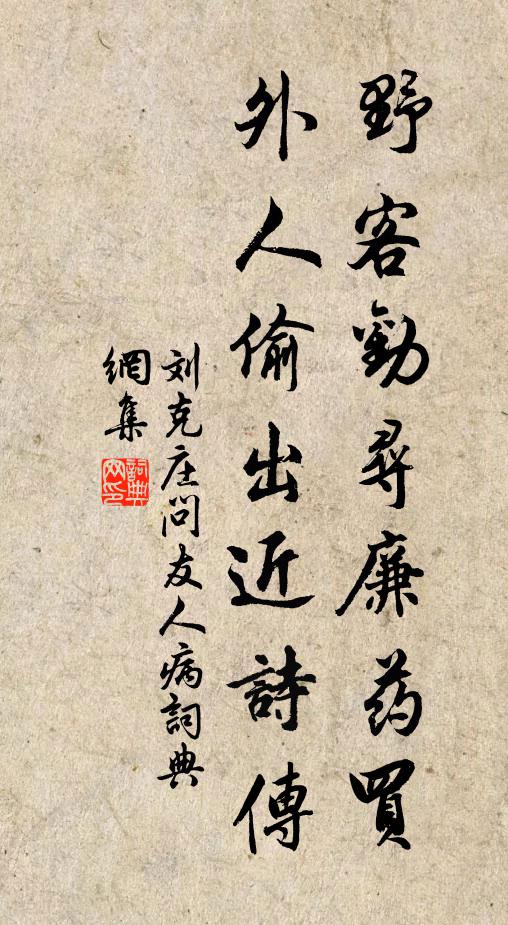 野客勸尋廉药買
外人偷出近詩傳
刘克庄问友人病詞典
網集
詞典
网印